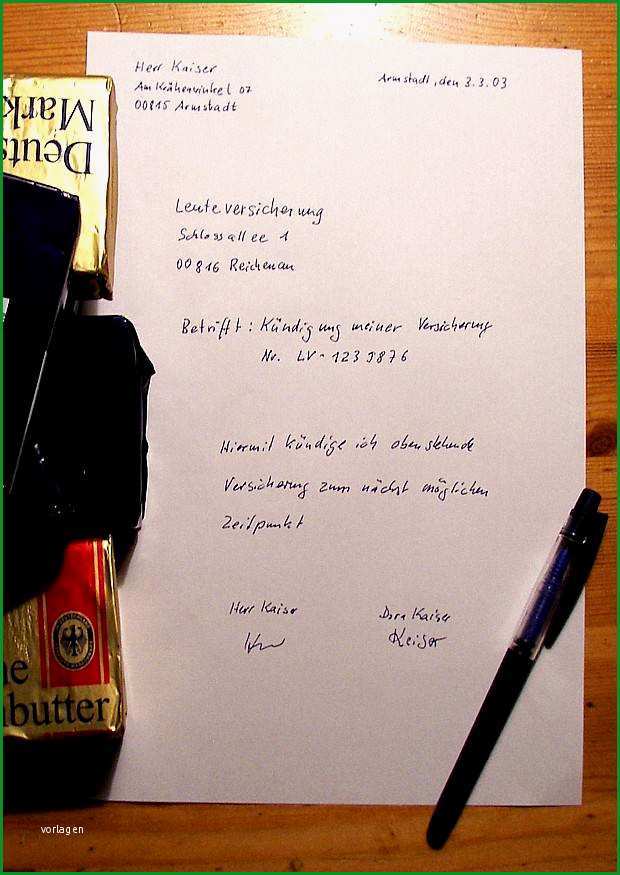 Herr Kaiser
Am Krähenwinkel 07
00815 Armstadt
Armstadt, den 3.3.03
Leuteversicherung
Schlossallee 1
00816 Reichenau
Betrifft: Kündigung meiner Versicherung
Nr. LV-123 9876
Hiermit kündige ich obenstehende
Versicherung zum nächst möglichen
Zeitpunkt
Herr Kaiser
Dora Kaiser
Keiser
Deuts
Mark
e
butter
vorlagen